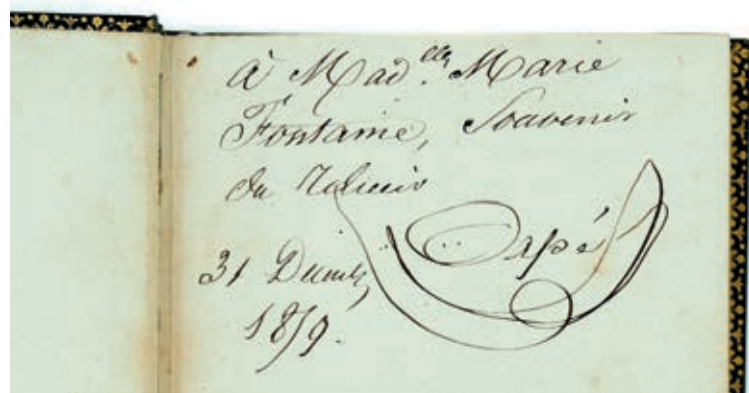 à Mad.elle Marie
Fontaine, Souvenir
du Relieur
Capé
31 Decemb,
1859.